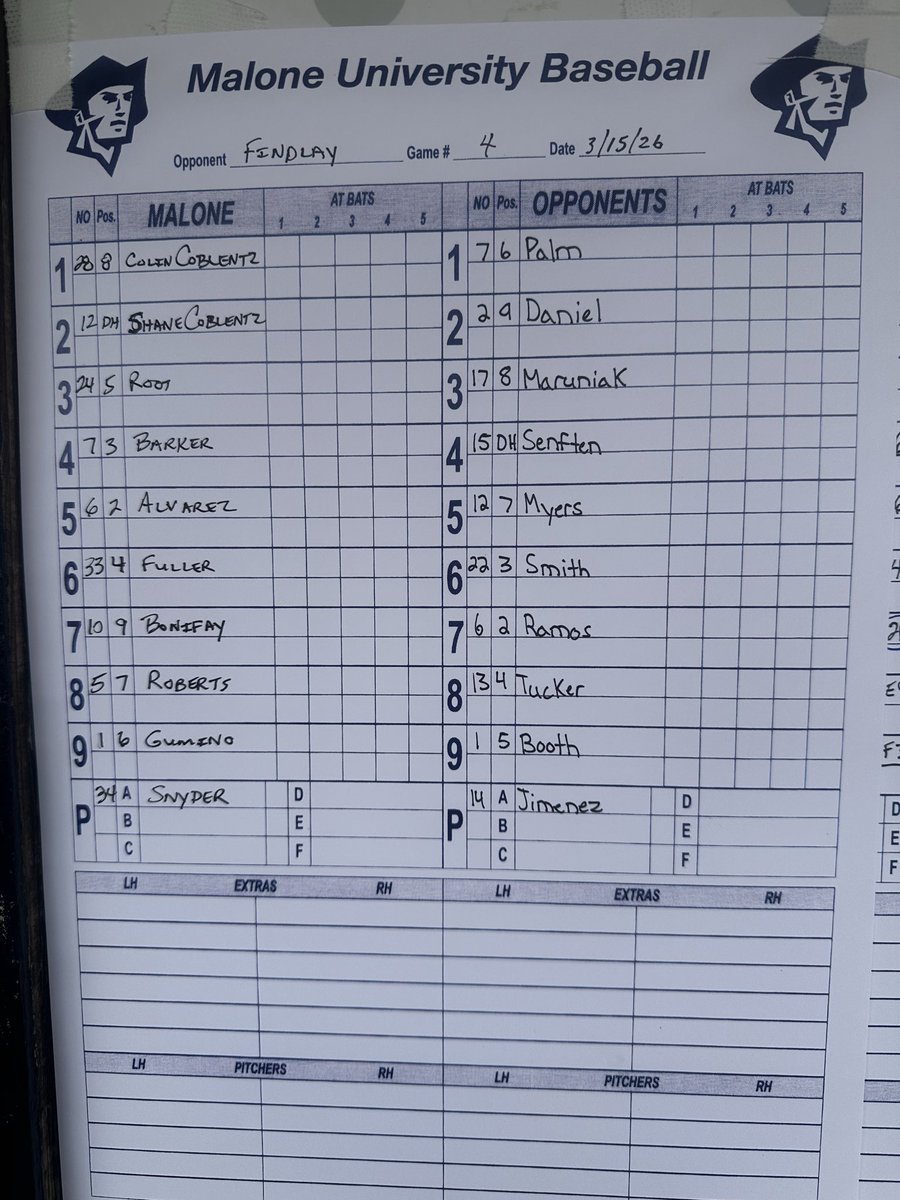 Malone University Baseball
Opponent FINDLAY Game # 4 Date 3/15/26
NO Pos. MALONE AT BATS 1 2 3 4 5 NO Pos. OPPONENTS AT BATS 1 2 3 4 5
1 28 8 COLIN COBLENTZ 1 7 6 Palm
2 12 DH SHANE COBLENTZ 2 2 9 Daniel
3 24 5 ROOT 3 17 8 Maruniak
4 7 3 BARKER 4 15 DH Senften
5 6 2 ALVAREZ 5 12 7 Myers
6 33 4 FULLER 6 22 3 Smith
7 10 9 BONIFAY 7 6 2 Ramos
8 5 7 ROBERTS 8 13 4 Tucker
9 1 6 GUMINO 9 1 5 Booth
P 34 A SNYDER D P 14 A Jimenez D
B E B E
C F C F
LH EXTRAS RH LH EXTRAS RH
LH PITCHERS RH LH PITCHERS RH
D
E
F